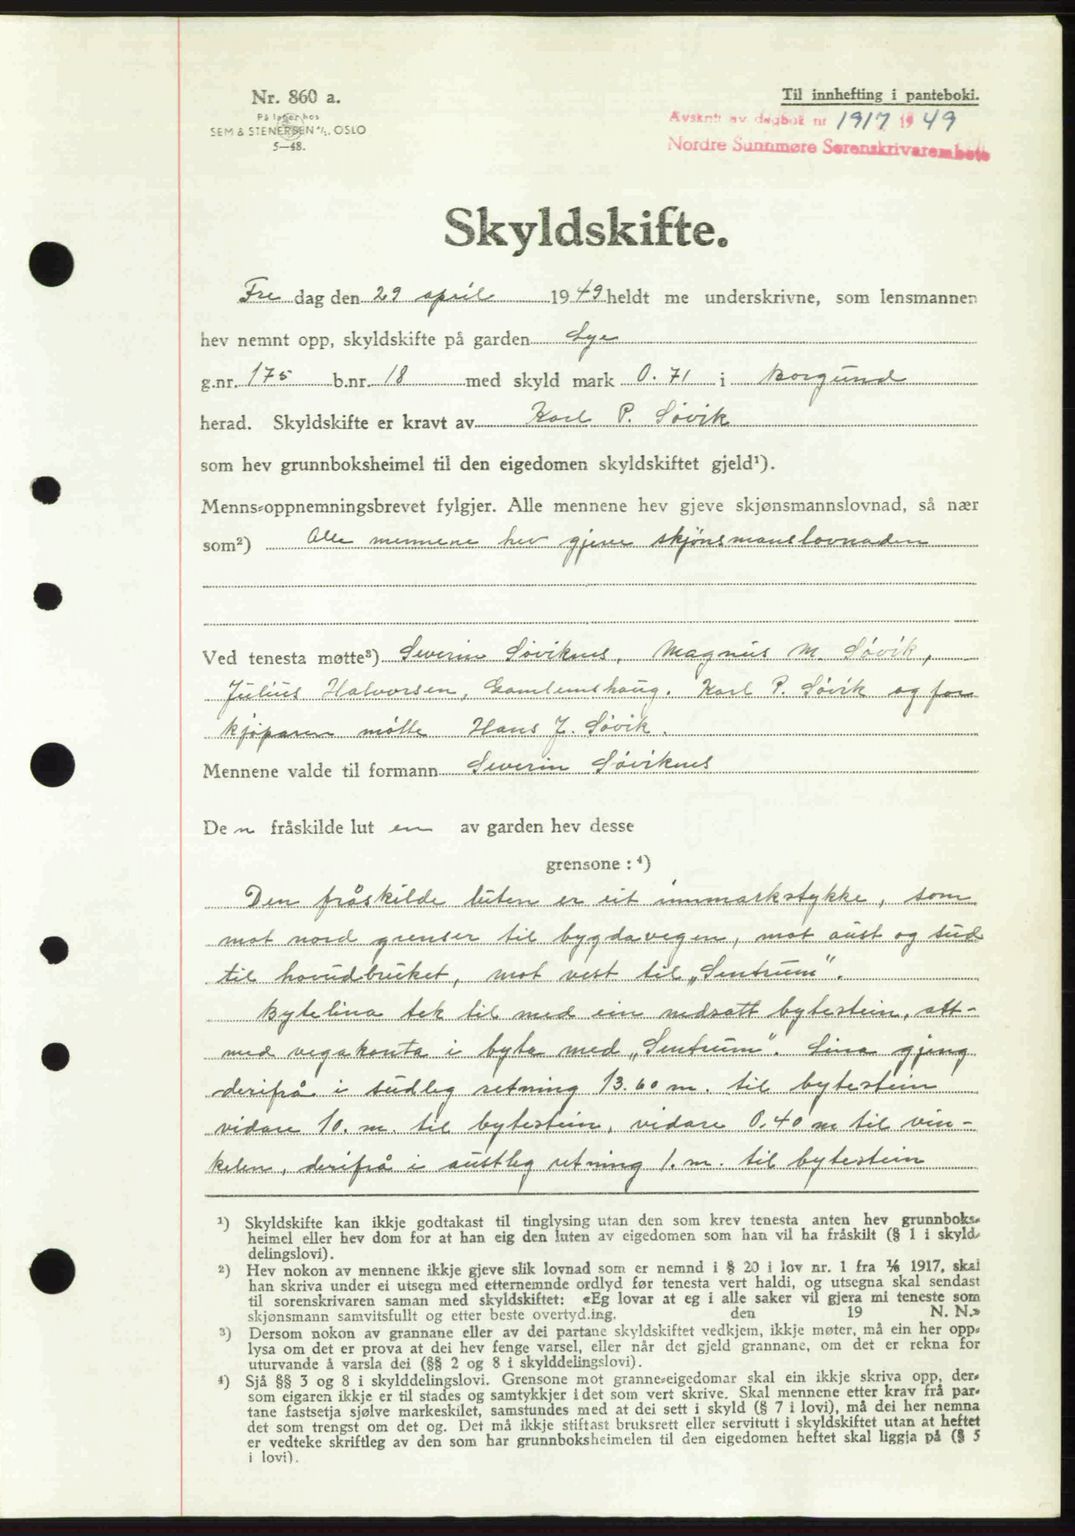 Nr. 860 a.
På lager hos
SEM & STENERSEN A/S, OSLO
5—48.
Til innhefting i panteboki.
Avskrift av dagbok nr 1917 19 49
Nordre Sunnmøre Sorenskrivarembete
Skyldskifte.
Fre dag den 29 april 19 49 heldt me underskrivne, som lensmannen
hev nemnt opp, skyldskifte på garden Lye
g.nr. 175 b.nr. 18 med skyld mark 0.71 i Borgund
herad. Skyldskifte er kravt av Karl P. Søvik
som hev grunnboksheimel til den eigedomen skyldskiftet gjeld¹).
Menns-oppnemningsbrevet fylgjer. Alle mennene hev gjeve skjønsmannslovnad, så nær
som²) Alle mennene hev gjeve skjönsmanslovnaden
Ved tenesta møtte³) Severin Søviknes, Magnus M. Søvik,
Julius Halvorsen, Gamlemshaug. Karl P. Søvik og for
kjøparen møtte Hans J. Søvik.
Mennene valde til formann Severin Søviknes
De n fråskilde lut en av garden hev desse
grensone : ⁴)
Den fråskilde luten er eit innmarkstykke, som
mot nord grenser til bygdavegen, mot aust og sud
til hovudbruket, mot vest til „Sentrum".
Bytelina tek til med ein nedsatt bytestein, att-
med vegakanta i byte med „Sentrum". Lina gjeng
derifrå i sudleg retning 13.60 m. til bytestein
vidare 10. m. til bytestein, vidare 0.40 m til vin-
kelen, derifrå i austleg retning 1. m. til bytestein
¹) Skyldskifte kan ikkje godtakast til tinglysing utan den som krev tenesta anten hev grunnboks-
heimel eller hev dom for at han eig den luten av eigedomen som han vil ha fråskilt (§ 1 i skyld-
delingslovi).
²) Hev nokon av mennene ikkje gjeve slik lovnad som er nemnd i § 20 i lov nr. 1 fra ⅙ 1917, skal
han skriva under ei utsegn med etternemnde ordlyd før tenesta vert haldi, og utsegna skal sendast
til sorenskrivaren saman med skyldskiftet: «Eg lovar at eg i alle saker vil gjera mi teneste som
skjønsmann samvitsfullt og etter beste overtyding. den 19 N. N.»
³) Dersom nokon av grannane eller av dei partane skyldskiftet vedkjem, ikkje møter, må ein her opp-
lysa om det er prova at dei hev fenge varsel, eller når det gjeld grannane, om det er rekna for
uturvande å varsla dei (§§ 2 og 8 i skylddelingslovi).
⁴) Sjå §§ 3 og 8 i skylddelingslovi. Grensone mot granne-eigedomar skal ein ikkje skriva opp, der-
som eigaren ikkje er til stades og samtykkjer i det som vert skrive. Skal mennene etter krav frå par-
tane fastsetja sjølve markeskilet, samstundes med at dei sett i skyld (§ 7 i lovi), må dei her nemna
det som trengst om det og. Det må ikkje stiftast bruksrett eller servitutt i skyldskiftet utan at heftet
er vedteke skriftleg av den som har grunnboksheimelen til den eigedomen heftet skal liggja på (§ 5
i lovi).